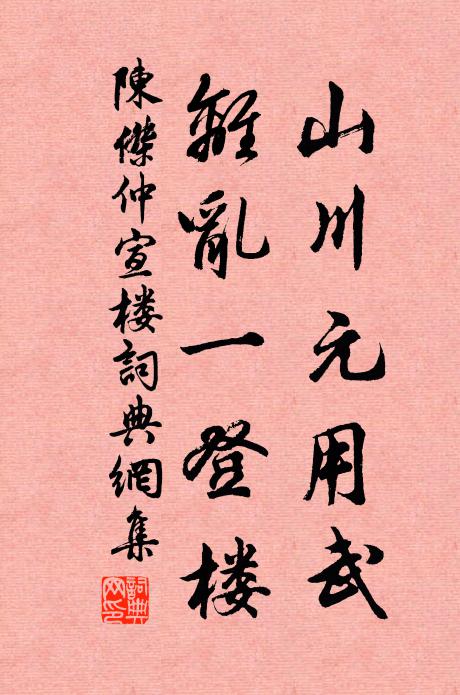 山川元用武
離亂一登楼
陳傑仲宣楼詞典網集
詞典網印